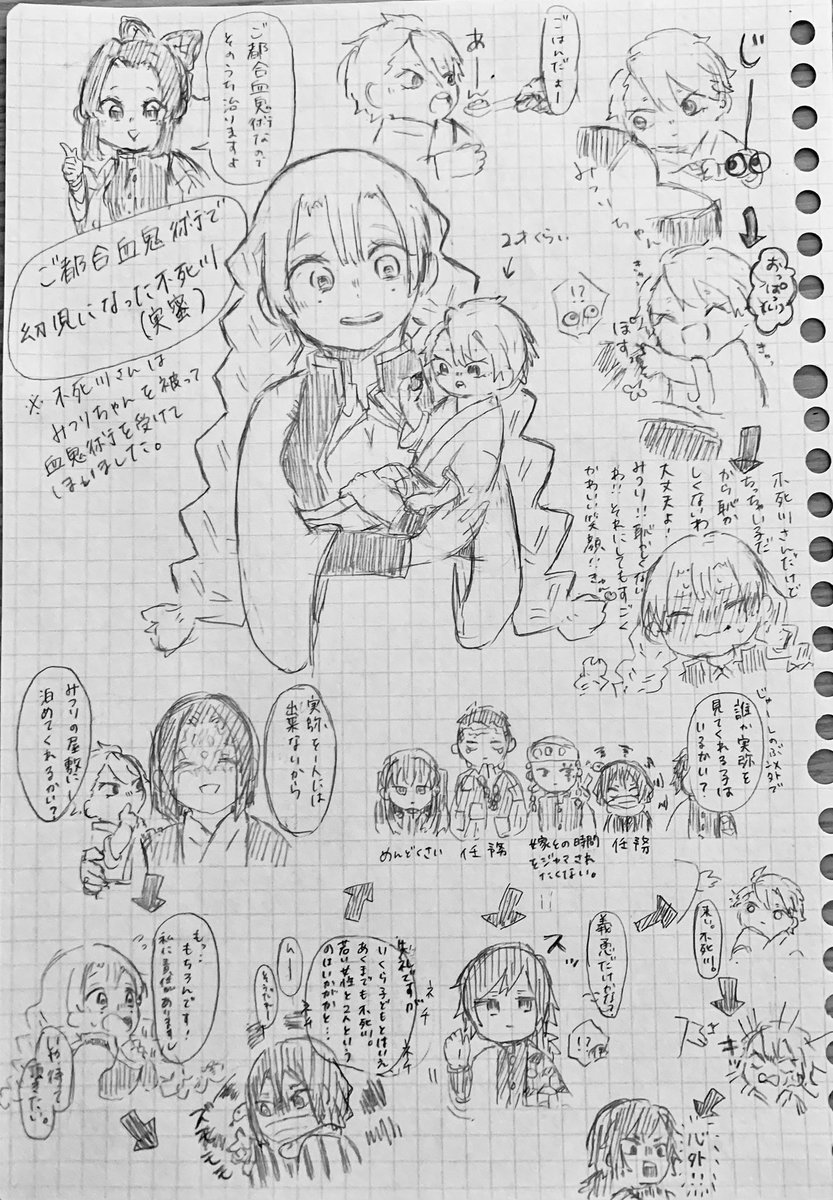 ご都合血鬼術なので
そのうち治りますよ
ごはんだよー
あーん
じ
みつりちゃん
ご都合血鬼術で
幼児になった不死川
(実蜜)
※不死川さんは
みつりちゃんを被って
血鬼術を受けて
しまいました。
2才くらい
!?
ぽす
きゅっ
不死川さんだけど
ちっちゃい子だ
から恥か
しくないわ
大丈夫よ!
みつり!!恥かくない
わ!!それにしてもすごく
かわいい笑顔!!きゃん
じゃーしのぶ以外で
誰か実弥を
見てくれる子は
いるかい?
任務
嫁との時間
をジャマされ
たくない。
任務
めんどくさい
実弥を一人には
出来ないから
みつりの屋敷に
泊めてくれるかい?
もっ…
もちろんです!
私に責任がありますし
いや待って
頂きたい。
ズオォォ
失礼ですが
いくら子どもとはいえ
あくまでも不死川。
若い女性と2人という
のはいかがかと…
ネチ
ネチ
んー
義勇だけかな?
スッ
!?
来い。不死川。
キッ
心外!!